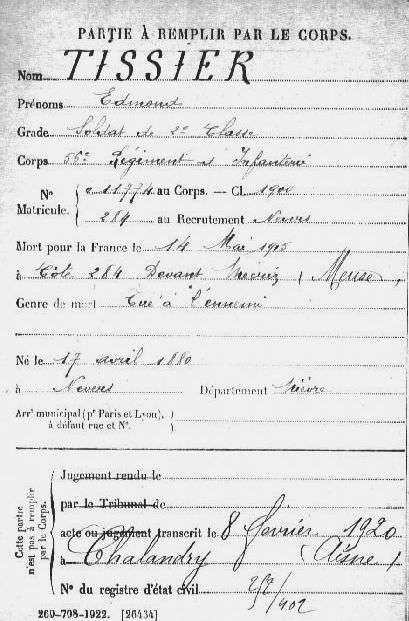 PARTIE À REMPLIR PAR LE CORPS.
Nom TISSIER
Prénoms Edmond
Grade Soldat de 2e Classe
Corps 56e Régiment d'Infanterie
N° Matricule. { 11774 au Corps. — Cl. 1900
284 au Recrutement Nevers
Mort pour la France le 14 Mai 1915
à Côte 284 Devant (Meuse)
Genre de mort Tué à l'ennemi
Né le 17 avril 1880
à Nevers Département Nièvre
Arrt municipal (pr Paris et Lyon),
à défaut rue et N°.
Cette partie n'est pas à remplir par le Corps.
Jugement rendu le
par le Tribunal de
acte ou jugement transcrit le 8 février 1920
à Chalandry (Aisne)
N° du registre d'état civil
260-708-1922. [26434]